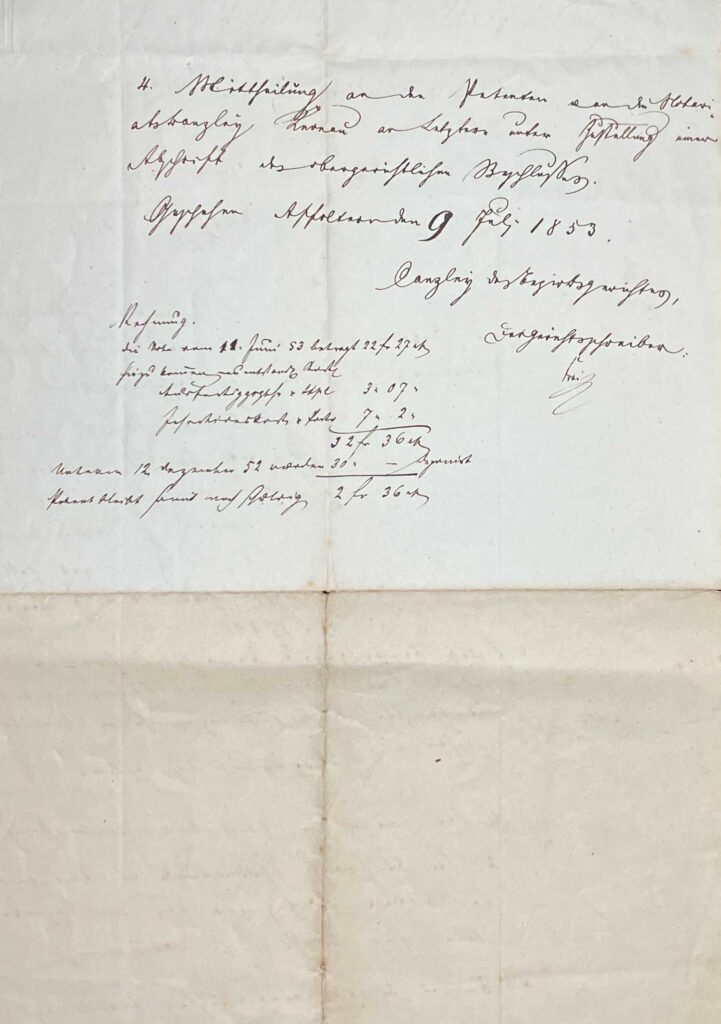 4. Mittheilung an den Petenten u. an die Notari-
atskanzley Knonau an Letztere unter Zustellung einer
Abschrift des obergerichtlichen Beschlusses.
Geschehen Affoltern den 9 Juli 1853.
Canzley des Bezirksgerichtes,
Der Gerichtsschreiber:
Frei
Rechnung.
Die Note vom 11. Juni 53 betragt 22 fr 27 ct
hiezu kommen
3 " 07 "
Insertionskosten u. Porto 7 " 2 "
32 fr 36 ct
Unterm 12 Dezember 52 wurden 30 " — deponirt
Petent bleibt somit noch schuldig 2 fr 36 ct